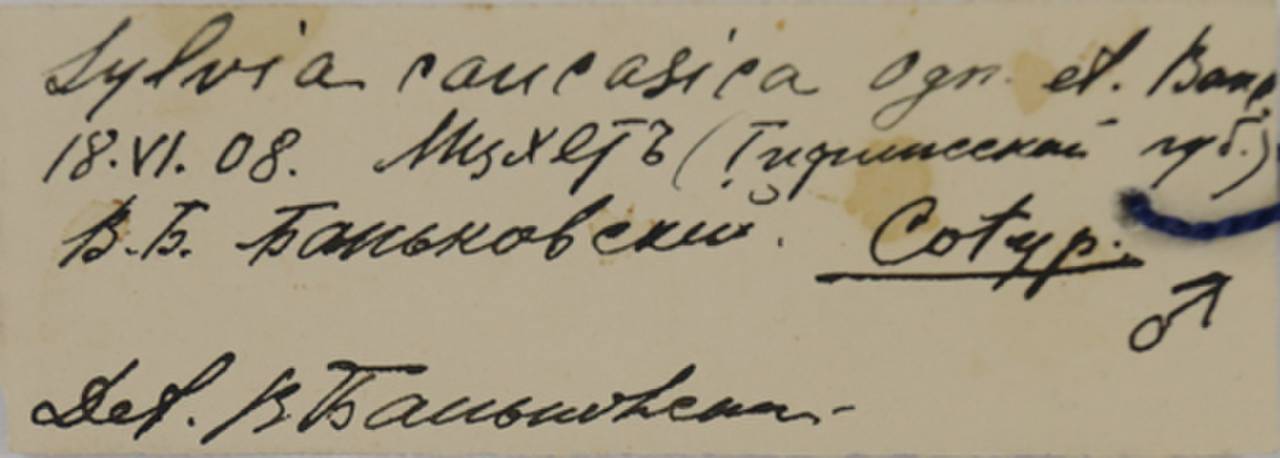 Sylvia caucasica Ogn. et. Бань
18.VI.08. Мцхетъ (Тифлисской губ.)
В.Б. Баньковский. Cotyp.
♂
Det. В Баньковский.